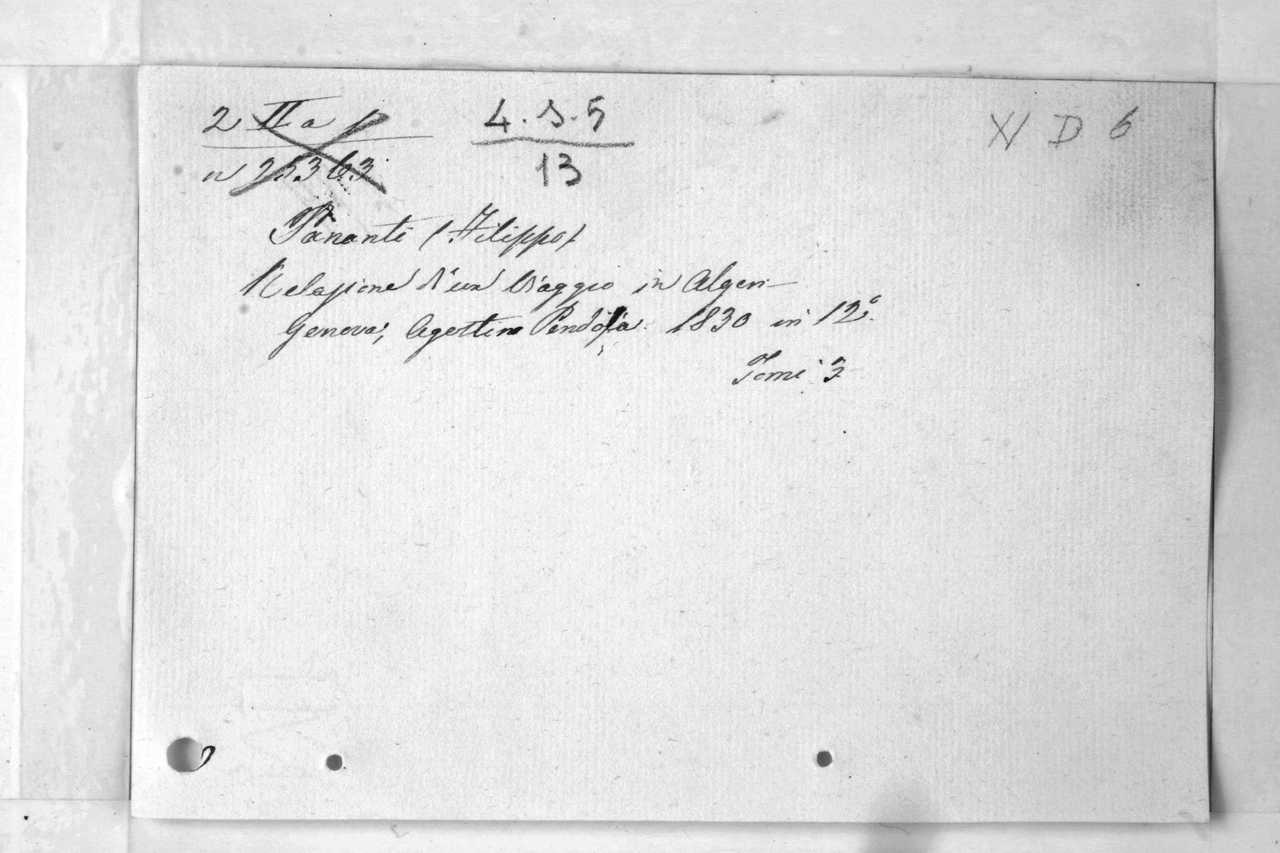 2 II a
4. S. 5
XV D 6
n 25363
13
Pananti (Filippo)
Relazione d'un Viaggio in Algeri
Genova, Agostino Pendola 1830 in 12°.
Tomi 3